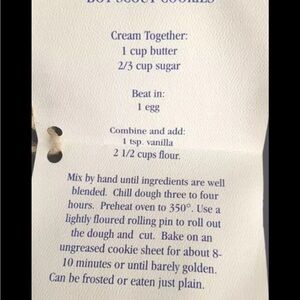 BOY SCOUT COOKIES
Cream Together:
1 cup butter
2/3 cup sugar
Beat in:
1 egg
Combine and add:
1 tsp. vanilla
2 1/2 cups flour.
Mix by hand until ingredients are well
blended. Chill dough three to four
hours. Preheat oven to 350°. Use a
lightly floured rolling pin to roll out
the dough and cut. Bake on an
ungreased cookie sheet for about 8-
10 minutes or until barely golden.
Can be frosted or eaten just plain.